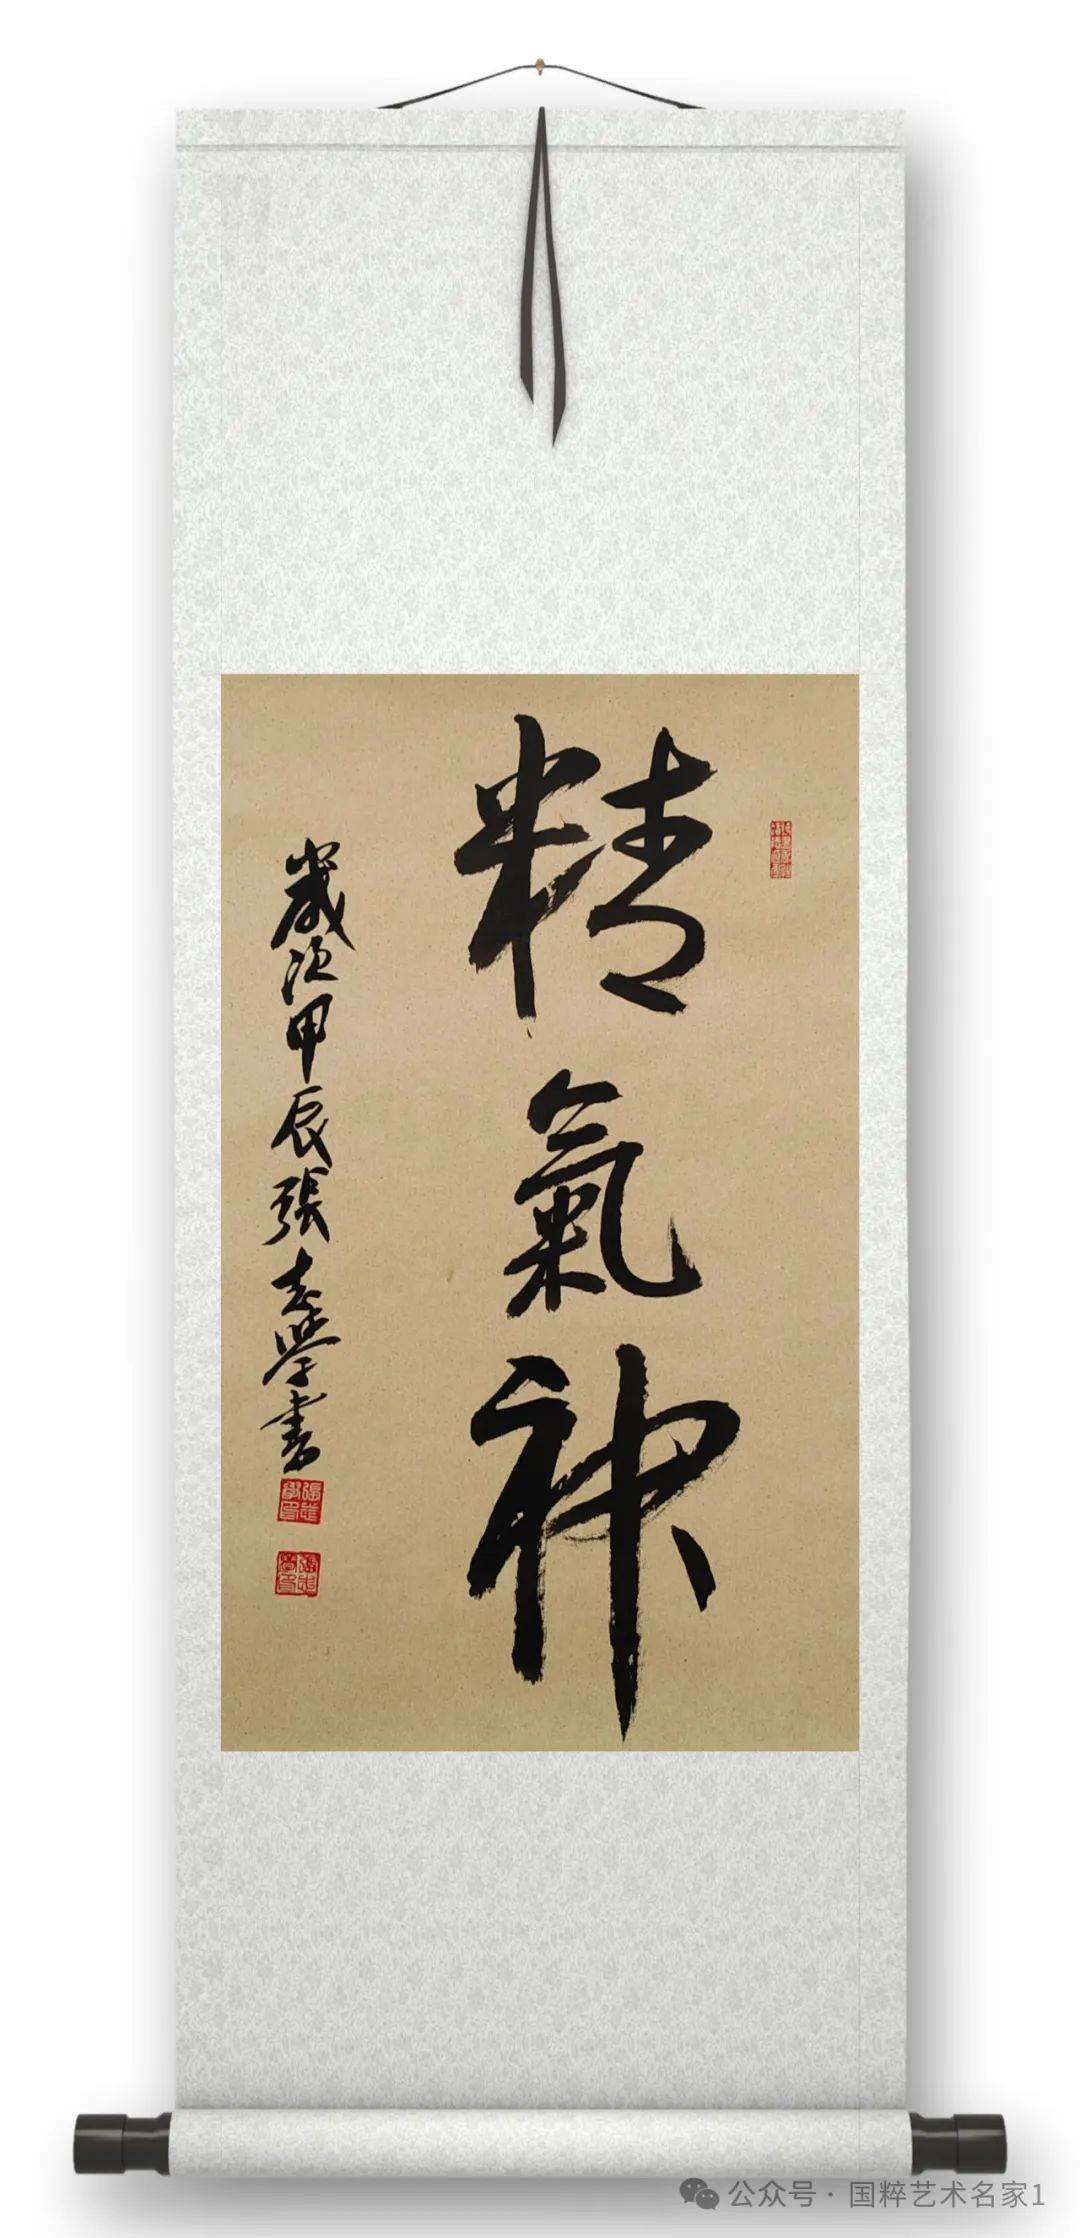 精氣神
歲次甲辰張學書
公众号 · 国粹艺术名家1